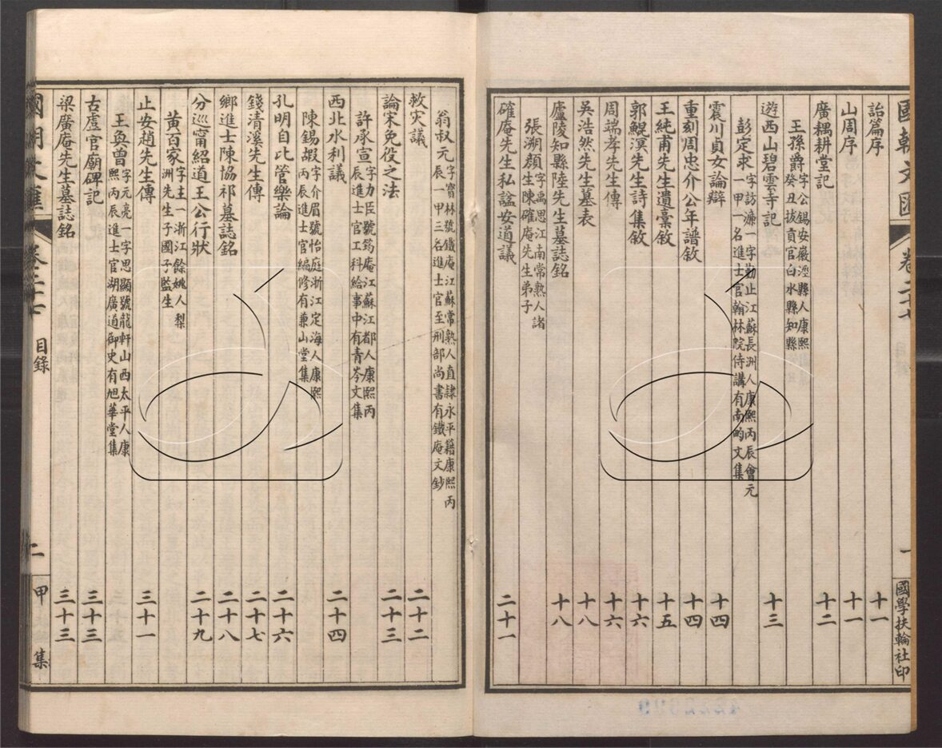 國朝文匯 卷二十七 一 國學扶輪社印
詒篇序 十一
山周序 十一
廣耦耕堂記 十二
王孫爵 字公錫安嚴涇縣人康熙癸丑拔貢官白水縣知縣
遊西山碧雲寺記 十三
彭定求 字訪濂一字勤止江蘇長洲人康熙丙辰會元一甲一名進士官翰林院侍講有南畇文集
震川貞女論辯 十四
重刻周忠介公年譜敘 十四
王純甫先生遺稾敘 十五
郭鯤溟先生詩集敘 十六
周端孝先生傳 十六
吳浩然先生墓表 十八
廬陵知縣陸先生墓誌銘 十八
張溯顏 字禹思江南常熟人諸生陳確庵先生弟子
確庵先生私諡安道議 二十一
翁叔元 字寶林號鐵庵江蘇常熟人直隸永平籍康熙丙辰一甲三名進士官至刑部尚書有鐵庵文鈔
救災議 二十二
論宋免役之法 二十三
許承宣 字力臣號筠庵江蘇江都人康熙丙辰進士官工科給事中有青岑文集
西北水利議 二十四
陳錫嘏 字介眉號怡庭浙江定海人康熙丙辰進士官編修有兼山堂集
孔明自比管樂論 二十六
錢清溪先生傳 二十七
鄉進士陳協祁墓誌銘 二十八
分巡甯紹道王公行狀 二十九
黃百家 字主一浙江餘姚人棃洲先生子國子監生
止安趙先生傳 三十一
王奐曾 字元亮一字思顯號龍軒山西太平人康熙丙辰進士官湖廣道御史有旭華堂集
古虛官廟碑記 三十三
梁廣庵先生墓誌銘 三十三
國朝文匯 卷二十七 目錄 二 甲集